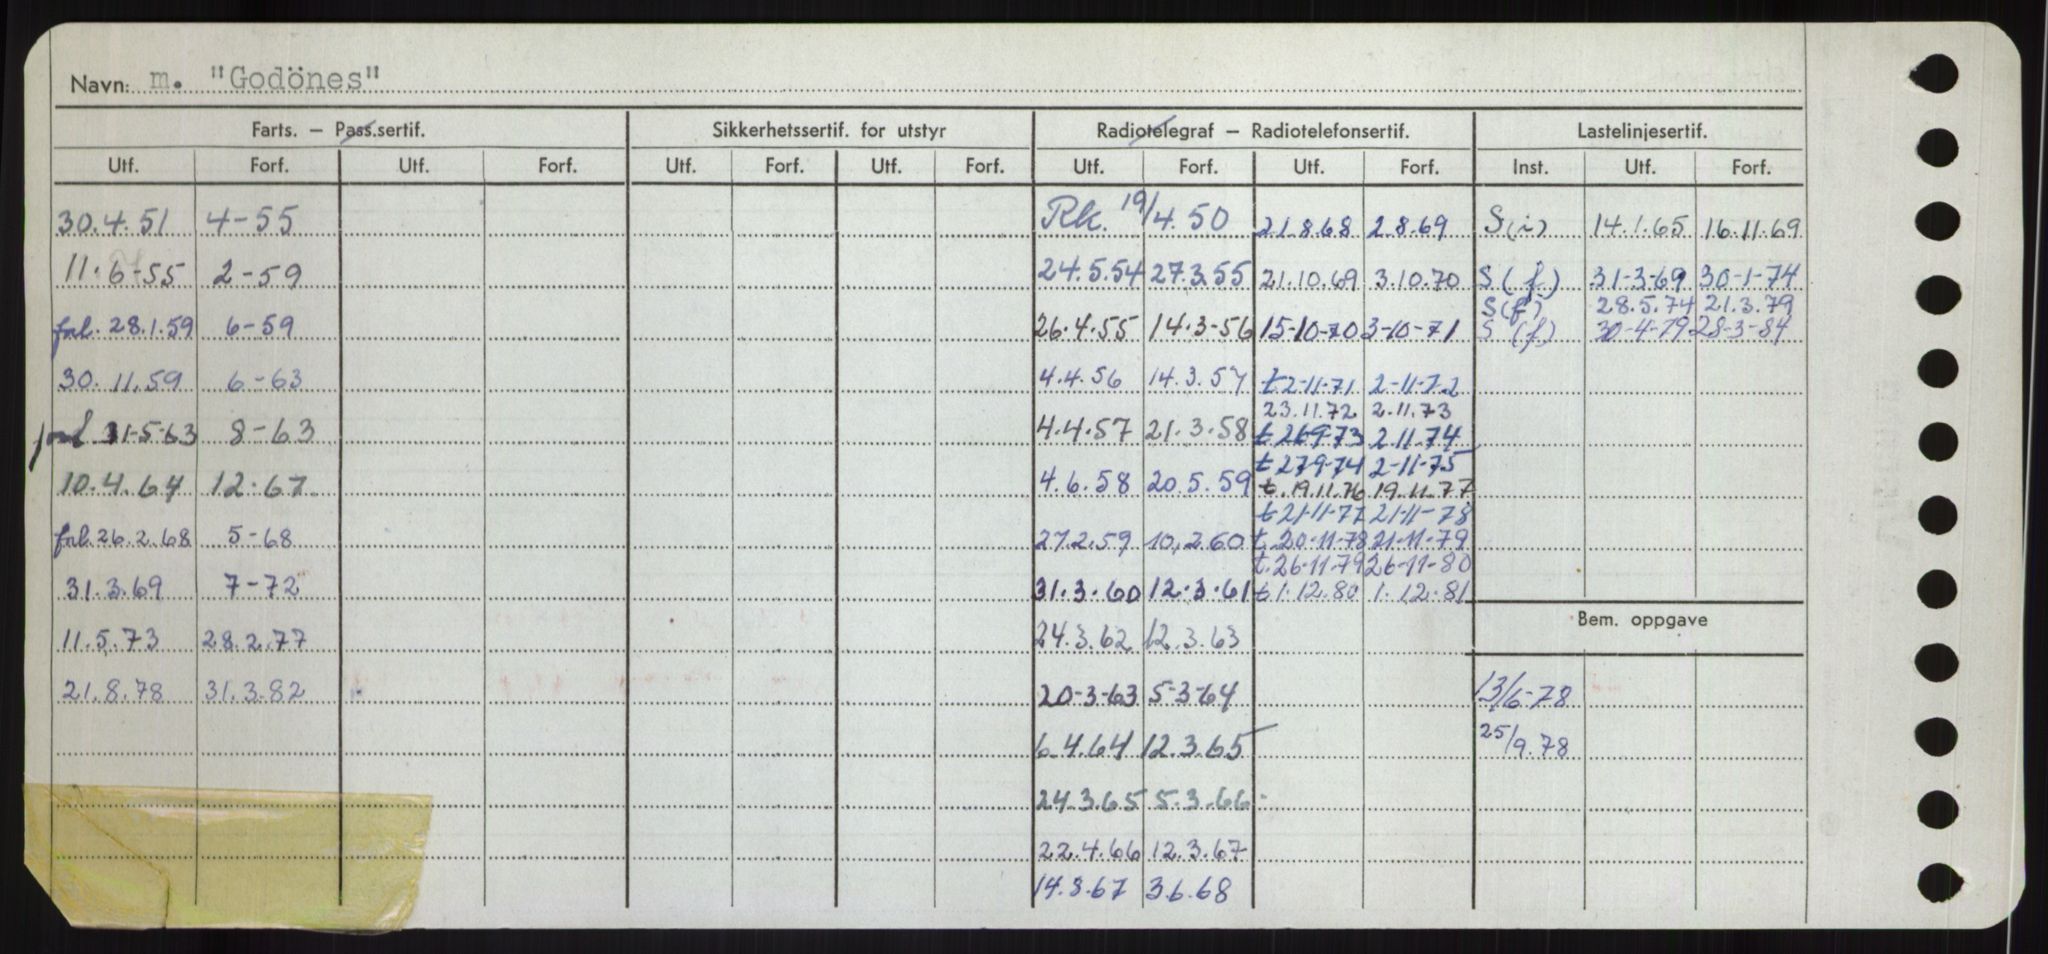 Navn: m. "Godönes"
Farts. – Pass.sertif. Sikkerhetssertif. for utstyr Radiotelegraf – Radiotelefonsertif. Lastelinjesertif.
Utf. Forf. Utf. Forf. Utf. Forf. Utf. Forf. Utf. Forf. Utf. Forf. Inst. Utf. Forf.
30.4.51 4-55 Rk. 19/4.50 21.8.68 2.8.69 S(i) 14.1.65 16.11.69
11.6-55 2-59 24.5.54 27.3.55 21.10.69 3.10.70 S(f) 31-3-69 30-1-74
S(f) 28.5.74 21.3.79
forl. 28.1.59 6-59 26.4.55 14.3-56 15-10-70 3-10-71 S(f) 30-4-79 28-3-84
30.11.59 6-63 4.4.56 14.3.57 t 2-11-71 2-11-72
23.11.72 2.11.73
forl 31-5-63 8-63 4.4.57 21.3.58 t 26.9-73 2.11.74
t 27.9-74 2-11-75
10.4.64 12.67 4.6.58 20.5.59 t. 19.11.76 19.11.77
t 21-11-77 21-11-78
forl. 26.2.68 5-68 27.2.59 10.2.60 t. 20-11-78 21-11-79
t. 26-11-79 26-11-80
31.3.69 7-72 31.3.60 12.3.61 t 1.12.80 1.12.81
Bem. oppgave
11.5.73 28.2.77 24.3.62 12.3.63
21.8.78 31.3.82 20-3-63 5-3-64 13/6-78
6.4.64 12.3.65 25/9.78
24.3.65 5.3.66
22.4.66 12.3.67
14.8.67 3.6.68